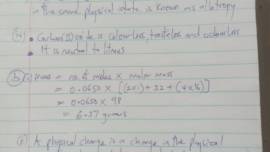 - the same physical state is known as allotropy
(iv) • Carbon(II) oxide is colourless, tasteless and odourless
• It is neutral to litmus
(b) Mass = no. of moles × molar mass
= 0.0650 × [(2×1) + 32 + (4×16)]
= 0.0650 × 98
= 6.37 grams
A physical change is a change in the physical